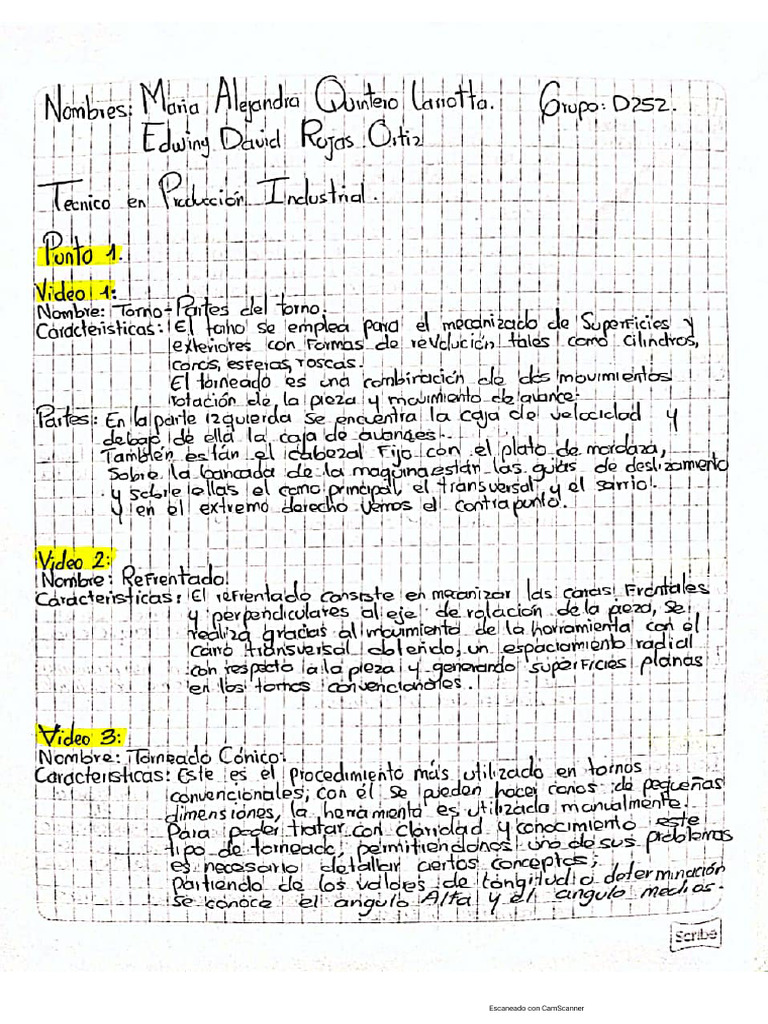 Nombres: Maria Alejandra Quintero Larrotta. Grupo: D252.
Edwing David Rojas Ortiz
Tecnico en Producción Industrial.
Punto 1.
Video 1:
Nombre: Torno-Partes del torno.
Caracteristicas: El torno se emplea para el mecanizado de Superficies y
exteriores con Formas de revolución tales como cilindros,
conos, esferas, roscas.
El torneado es una combiración de dos movimientos
rotación de la pieza y movimiento de avance.
Partes: En la parte izquierda se encuentra la caja de velocidad y
debajo de ella la caja de avances.
También están el cabezal Fijo con el plato de mordaza,
Sobre la bancada de la maquina están las guias de deslizamento
y sobre ellas el carro principal, el transversal y el
y en el extremo derecho vemos el contrapunto.
Video 2:
Nombre: Refrentado.
Caracteristicas: El refrentado consiste en mecanizar las caras Frontales
y perpendiculares al eje de rotación de la pieza, se
realiza gracias al movimiento de la herramienta con el
carro transversal obteniendo, un espaciamiento radial
con respecto a la pieza y generando superficies planas
en los tornos convencionales.
Video 3:
Nombre: Torneado Cónico.
Caracteristicas: Este es el procedimiento más utilizado en tornos
convencionales, con él se pueden hacer conos de pequeñas
dimensiones, la herramienta es utilizada manualmente.
Para poder tratar con claridad y conocimiento este
tipo de torneado, permitiendonos uno de sus problemas
es necesario detallar ciertos conceptos;
partiendo de los valores de longitud o determinación
se conoce el angulo Alfa y el angulo medios.
Scribe
Escaneado con CamScanner